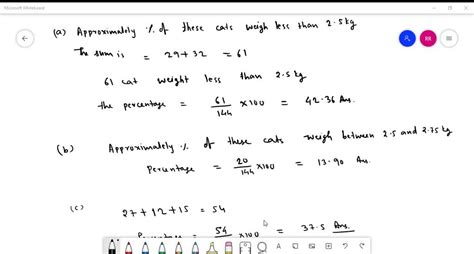 Microsoft Whiteboard
(a) Approximately % of these cats weigh less than 2.5 kg
The sum is = 29 + 32 = 61
RR
61 cat weight less than 2.5 kg
the percentage = 61/144 × 100 = 42.36 Ans.
(b) Approximately % of these cats weigh between 2.5 and 2.75 kg
Percentage = 20/144 × 100 = 13.90 Ans.
(c) 27 + 12 + 15 = 54
Percentage = 54 × 100 = 37.5 Ans.